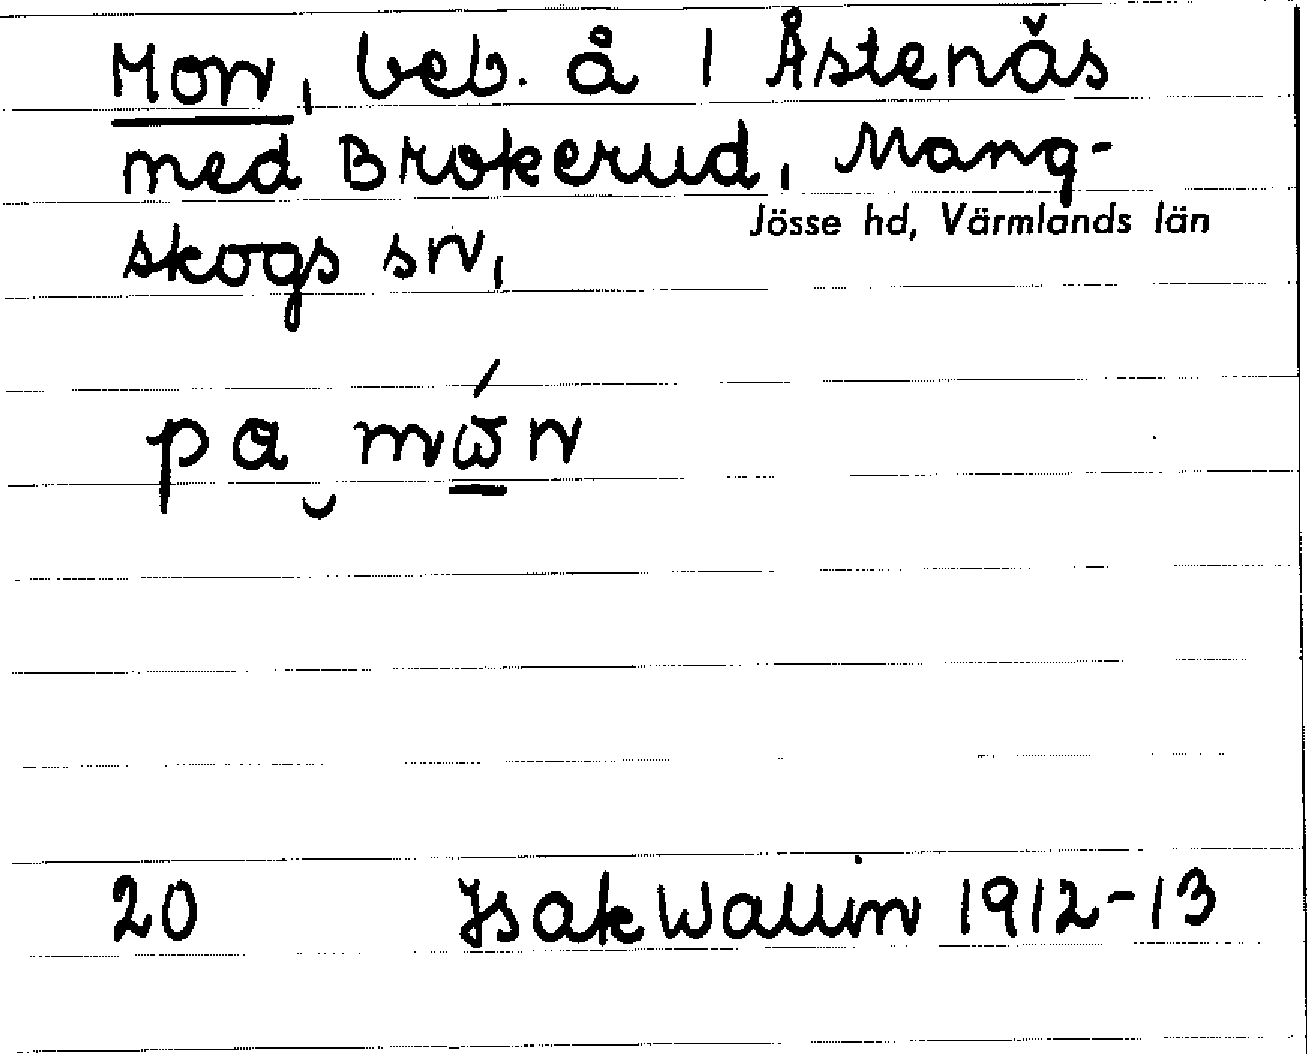 Mon, beb. å 1 Åstenäs
med Brokerud, Mang-
skogs sn,
Jösse hd, Värmlands län
pa mώn
20 Isak Wallin 1912-13